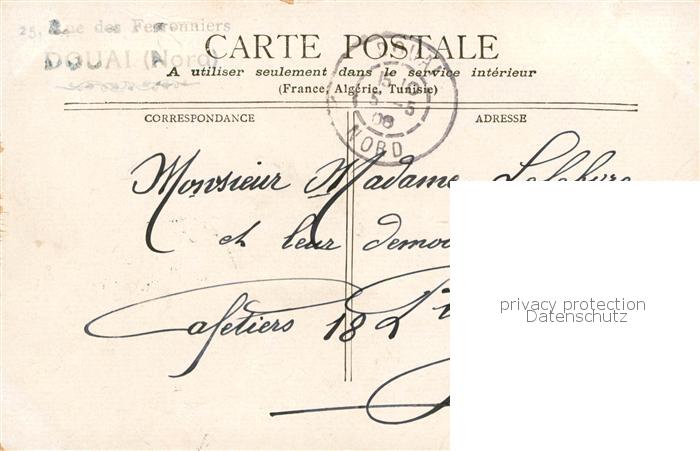 25, Rue des Ferronniers
DOUAI (Nord)
CARTE POSTALE
A utiliser seulement dans le service intérieur
(France, Algérie, Tunisie)
CORRESPONDANCE
ADRESSE
DOUAI
5 -5
08
NORD
Monsieur Madame Lefebvre
et leur
Cafetiers 182
privacy protection
Datenschutz